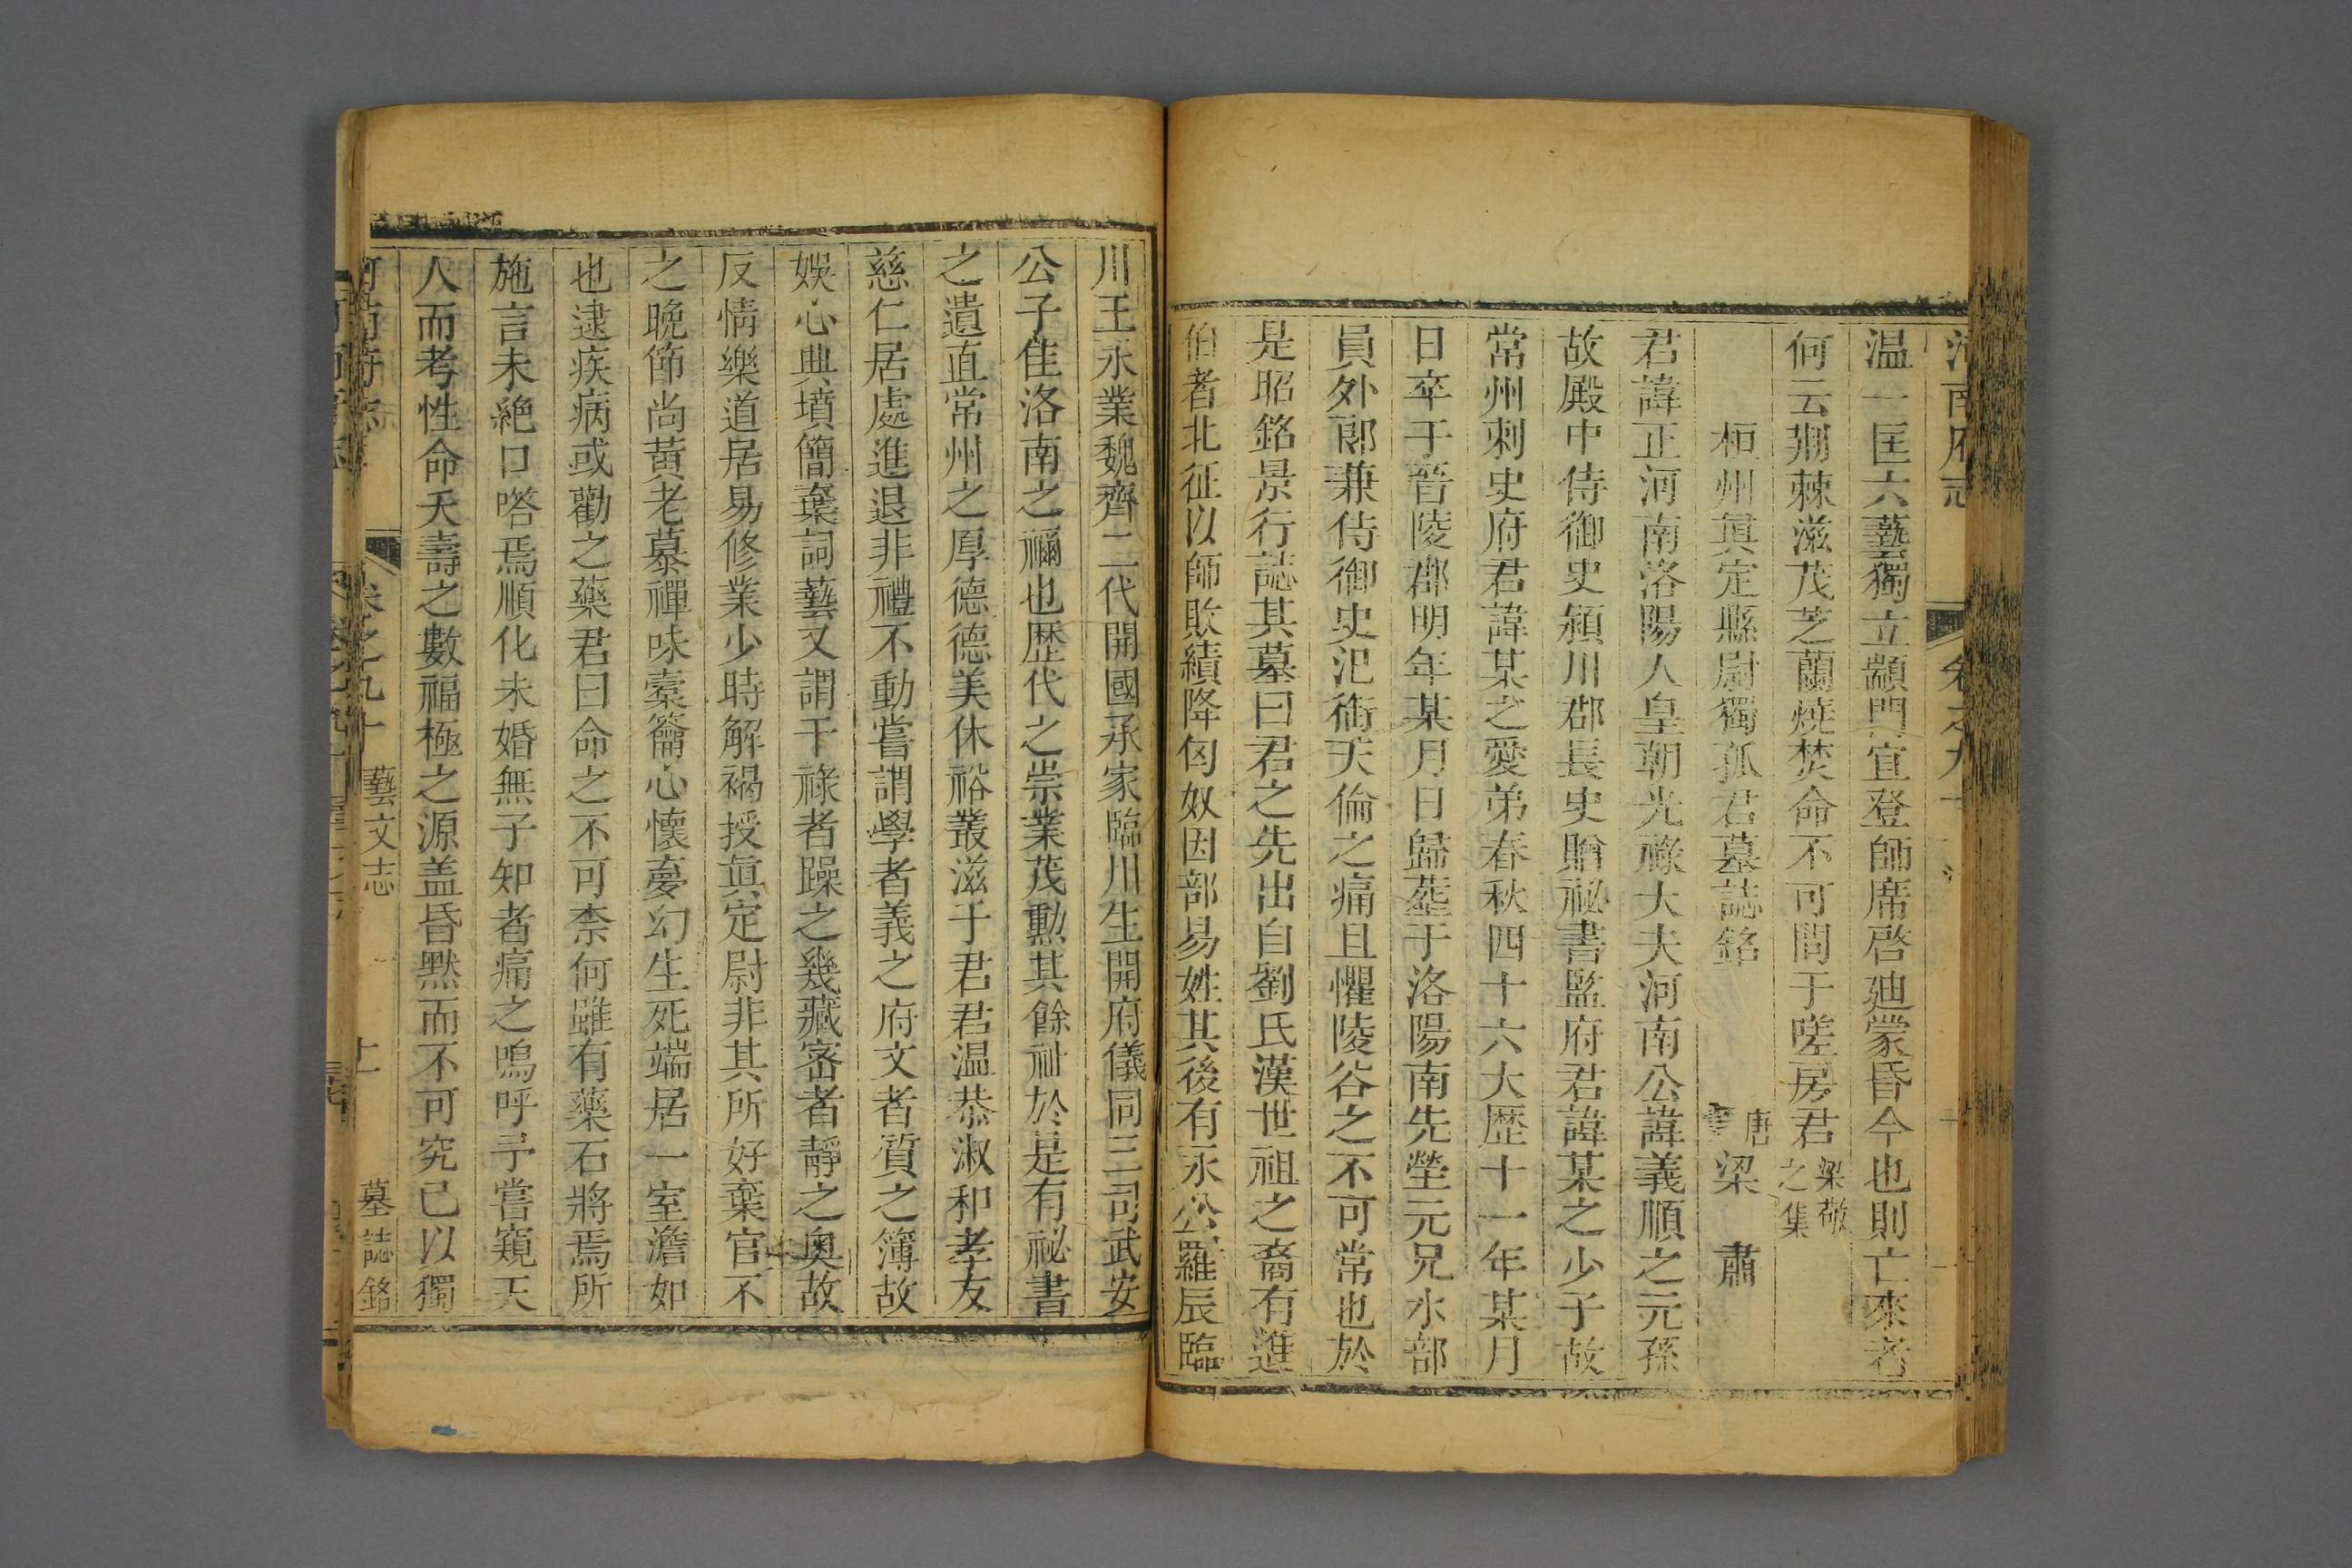 河南府志 卷之九十
温一匡六藝獨立顓門宜登師席啓廸蒙昏今也則亡來者
何云荆棘滋茂芝蘭燒焚命不可問于嗟房君梁敬之集
桓州眞定縣尉獨孤君墓誌銘 唐 梁 肅
君諱正河南洛陽人皇朝光祿大夫河南公諱義順之元孫
故殿中侍御史潁川郡長史贈祕書監府君諱某之少子故
常州刺史府君諱某之愛弟春秋四十六大歷十一年某月
日卒于晉陵郡明年某月日歸塟于洛陽南先塋元兄水部
員外郎兼侍御史汜銜天倫之痛且懼陵谷之不可常也於
是昭銘景行誌其墓曰君之先出自劉氏漢世祖之裔有進
伯者北征以師敗績降匈奴因部易姓其後有永公羅辰臨
川王永業魏齊二代開國承家臨川生開府儀同三司武安
公子佳洛南之禰也歴代之崇業茂勲其餘祉於是有祕書
之遺直常州之厚德德美休裕叢滋于君君温恭淑和孝友
慈仁居處進退非禮不動嘗謂學者義之府文者質之簿故
娛心典墳簡棄詞藝又謂干祿者躁之幾藏密者靜之奥故
反情樂道居易修業少時解褐授眞定尉非其所好棄官不
之晚節尚黃老慕禪味橐籥心懷夢幻生死端居一室澹如
也逮疾病或勸之藥君曰命之不可柰何雖有藥石將焉所
施言未絶口嗒焉順化未婚無子知者痛之嗚呼予嘗窺天
人而考性命夭壽之數福極之源盖昏默而不可究已以獨
卷之九十 藝文志 墓誌銘